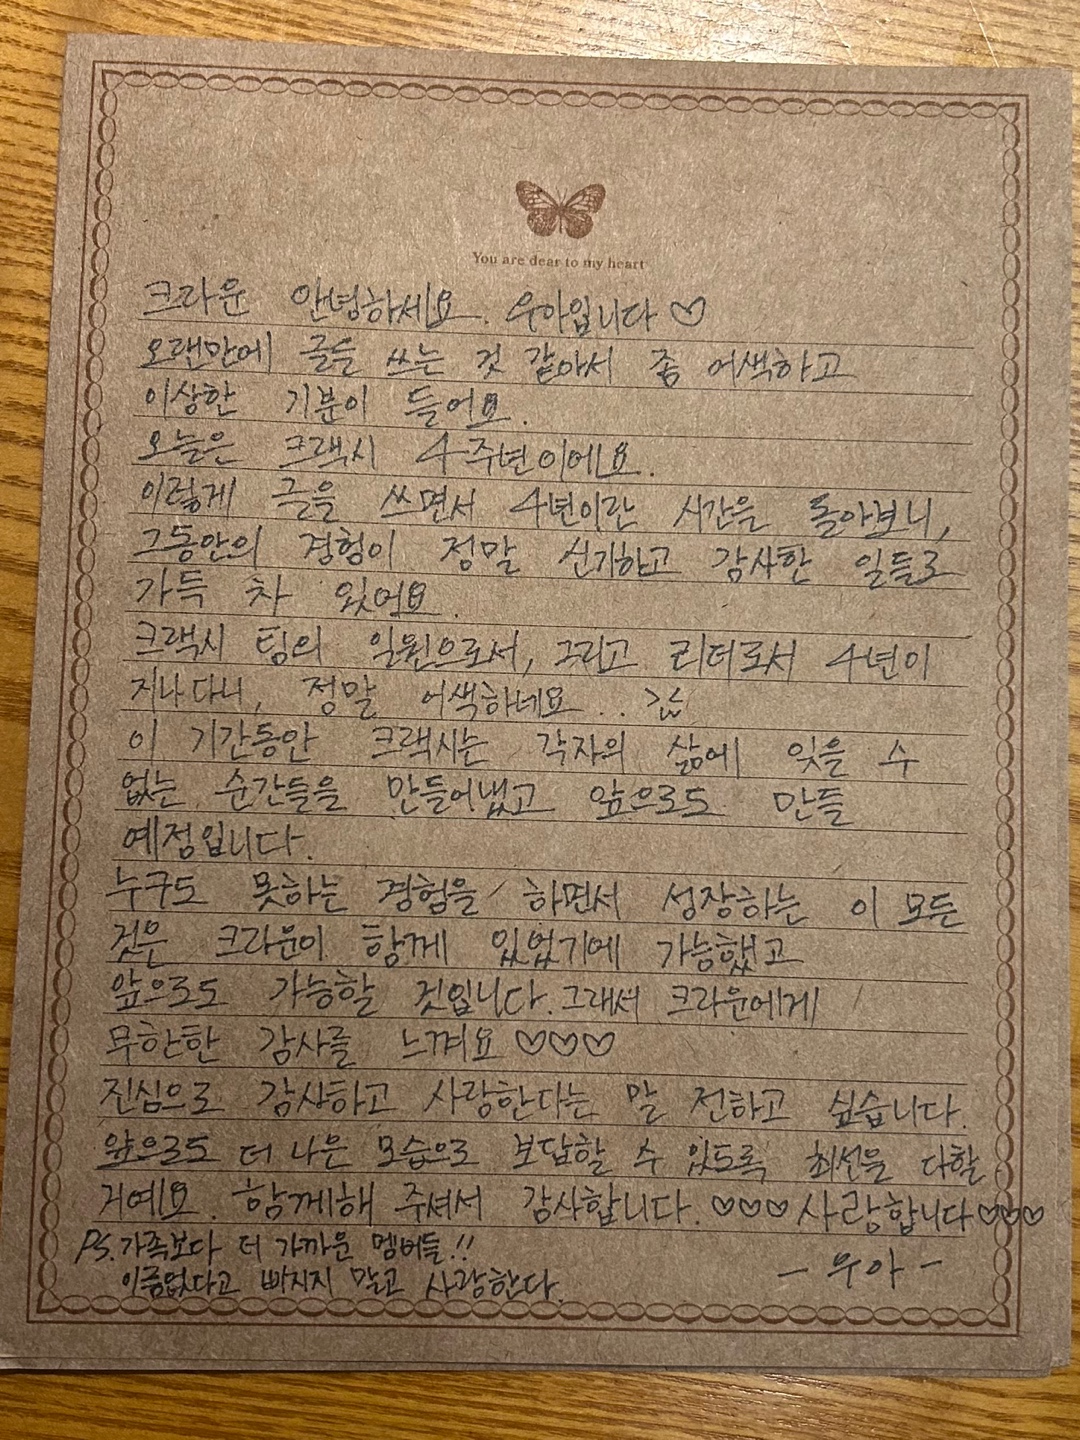 You are dear to my heart
크라운 안녕하세요. 우아입니다 ♡
오랜만에 글을 쓰는 것 같아서 좀 어색하고
이상한 기분이 들어요.
오늘은 크랙시 4주년이에요.
이렇게 글을 쓰면서 4년이란 시간을 돌아보니,
그동안의 경험이 정말 신기하고 감사한 일들로
가득 차 있어요.
크랙시 팀의 일원으로서, 그리고 리더로서 4년이
지나다니, 정말 어색하네요..
이 기간동안 크랙시는 각자의 삶에 잊을 수
없는 순간들을 만들어냈고 앞으로도 만들
예정입니다.
누구도 못하는 경험을 하면서 성장하는 이 모든
것은 크라운이 함께 있었기에 가능했고
앞으로도 가능할 것입니다. 그래서 크라운에게
무한한 감사를 느껴요 ♡♡♡
진심으로 감사하고 사랑한다는 말 전하고 싶습니다.
앞으로도 더 나은 모습으로 보답할 수 있도록 최선을 다할
거예요. 함께해 주셔서 감사합니다. ♡♡♡ 사랑합니다♡♡♡
PS. 가족보다 더 가까운 멤버들!!
이름없다고 빠지지 말고 사랑한다.
- 우아 -